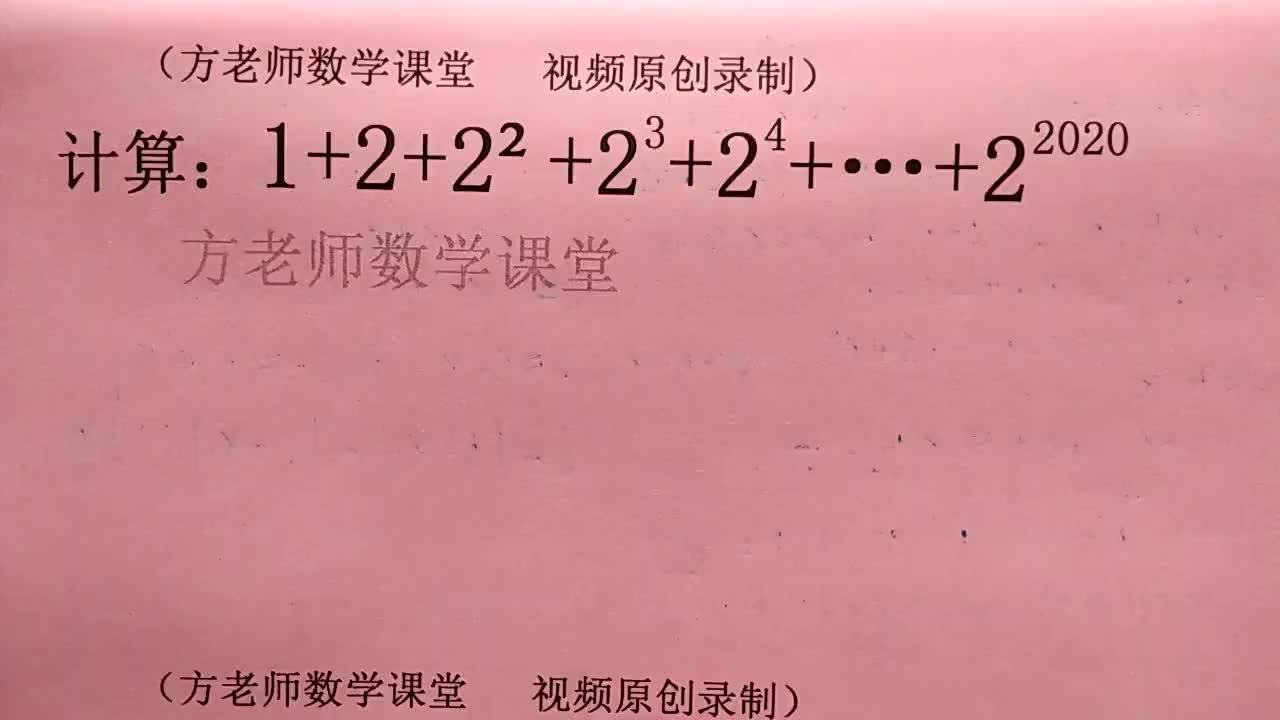 （方老师数学课堂 视频原创录制）
计算：1+2+2²+2³+2⁴+•••+2²⁰²⁰
方老师数学课堂
（方老师数学课堂 视频原创录制）